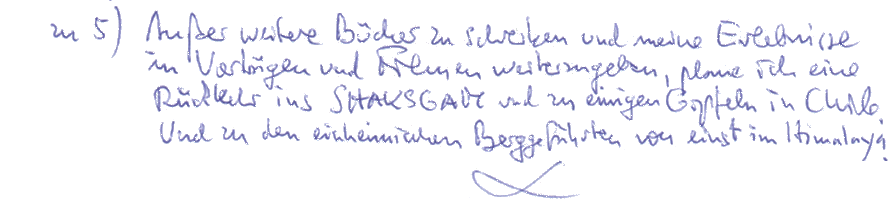 zu 5) Außer weitere Bücher zu schreiben und meine Erlebnisse
in Vorträgen und Filmen weiterzugeben, plane ich eine
Rückkehr ins SHAKSGAM und zu einigen Gipfeln in Chile.
Und zu den einheimischen Berggefährten von einst im Himalaya!